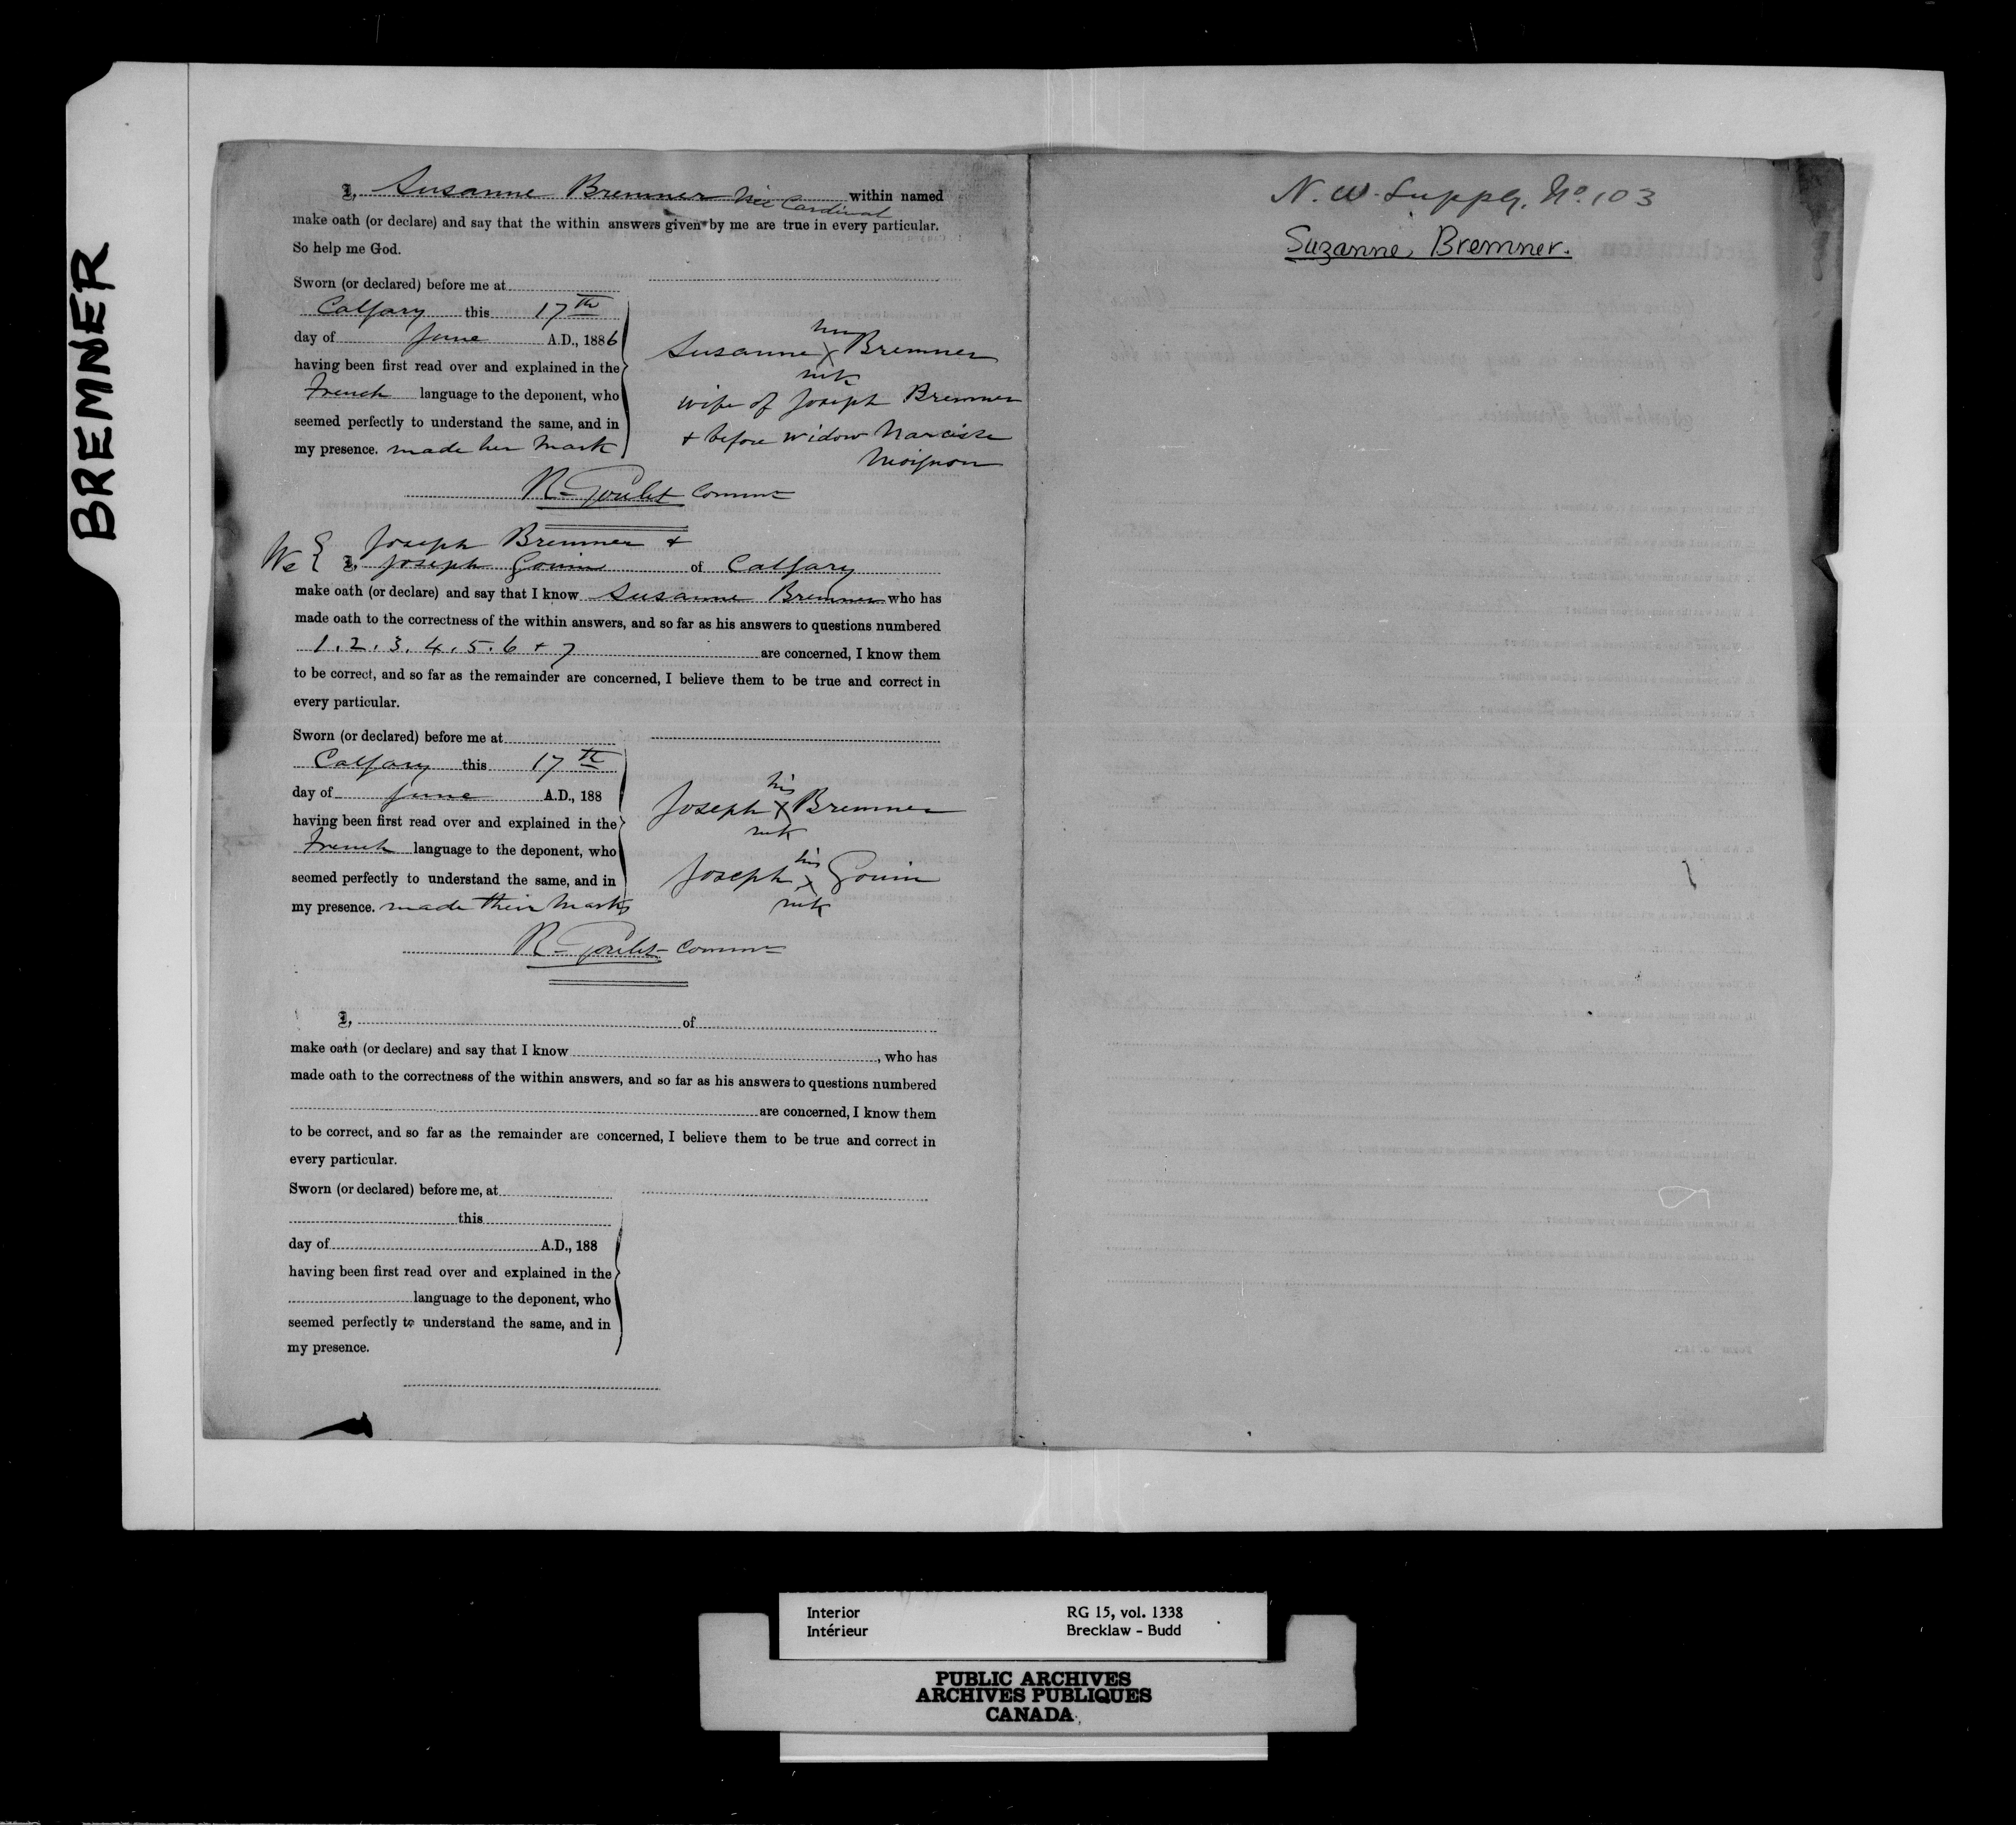 BREMNER
I, Susanne Bremner née Cardinal within named
make oath (or declare) and say that the within answers given by me are true in every particular.
So help me God.
Sworn (or declared) before me at
Calgary this 17th
day of June A.D., 1886
having been first read over and explained in the
French language to the deponent, who
seemed perfectly to understand the same, and in
my presence. made her mark
her
Susanne X Bremner
mk
wife of Joseph Bremner
+ before widow Narcisse
Moignon
R. Goulet Commr
We { Joseph Bremner +
I, Joseph Gouin of Calgary
make oath (or declare) and say that I know Susanne Bremner who has
made oath to the correctness of the within answers, and so far as his answers to questions numbered
1. 2. 3. 4. 5. 6 + 7 are concerned, I know them
to be correct, and so far as the remainder are concerned, I believe them to be true and correct in
every particular.
Sworn (or declared) before me at
Calgary this 17th
day of June A.D., 188
having been first read over and explained in the
French language to the deponent, who
seemed perfectly to understand the same, and in
my presence. made their marks
his
Joseph X Bremner
mk
his
Joseph X Gouin
mk
R. Goulet Commr
I, of
make oath (or declare) and say that I know , who has
made oath to the correctness of the within answers, and so far as his answers to questions numbered
are concerned, I know them
to be correct, and so far as the remainder are concerned, I believe them to be true and correct in
every particular.
Sworn (or declared) before me, at
this
day of A.D., 188
having been first read over and explained in the
language to the deponent, who
seemed perfectly to understand the same, and in
my presence.
N. W. Supply. No. 103
Suzanne Bremner.
Interior RG 15, vol. 1338
Intérieur Brecklaw - Budd
PUBLIC ARCHIVES
ARCHIVES PUBLIQUES
CANADA